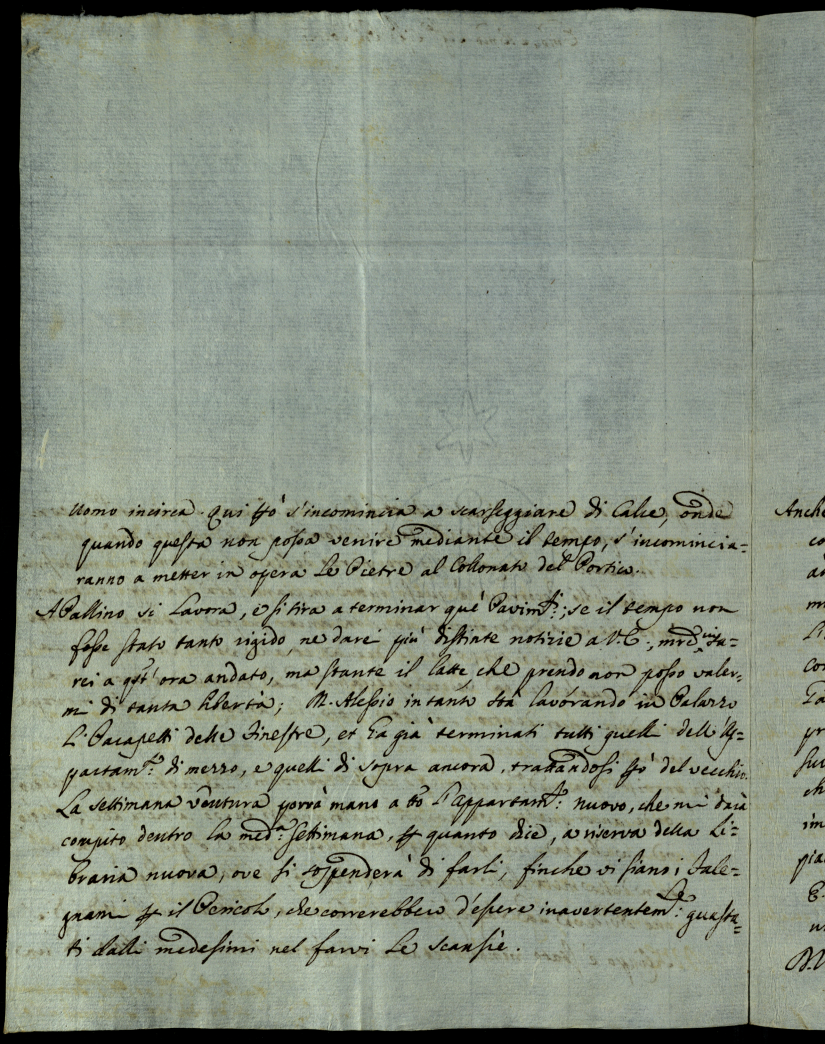 uomo incirca. Qui però s'incomincia a scarseggiare di Calce, onde
quando questa non possa venire mediante il tempo, s'incomincia=
ranno a metter in opera le Pietre al Collonato del Portico.
A Pallino si Lavora, e si tira a terminar què Pavim.ti; se il tempo non
fosse stato tanto rigido, ne darei più distinte notizie a V.E.,
rei a quest'ora andato, ma stante il latte, che prendo non posso valer=
mi di tanta libertà; M. Alessio in tanto stà lavorando in Palazzo
li Parapetti delle Finestre, et ha già terminati tutti quelli dell'Ap=
partam.to di mezzo, e quelli di sopra ancora, trattandosi però del vecchio.
La settimana ventura porrà mano a tto l'appartam.to nuovo, che mi darà
compito dentro la med.a settimana, per quanto dice, a riserva della Li=
braria nuova, ove si sospenderà di farli, finche vi siano i Fale=
gnami per il Pericolo, che correrebbero d'essere inavertentem.te guasta=
ti dalli medesimi nel farvi le scansie.
Anche